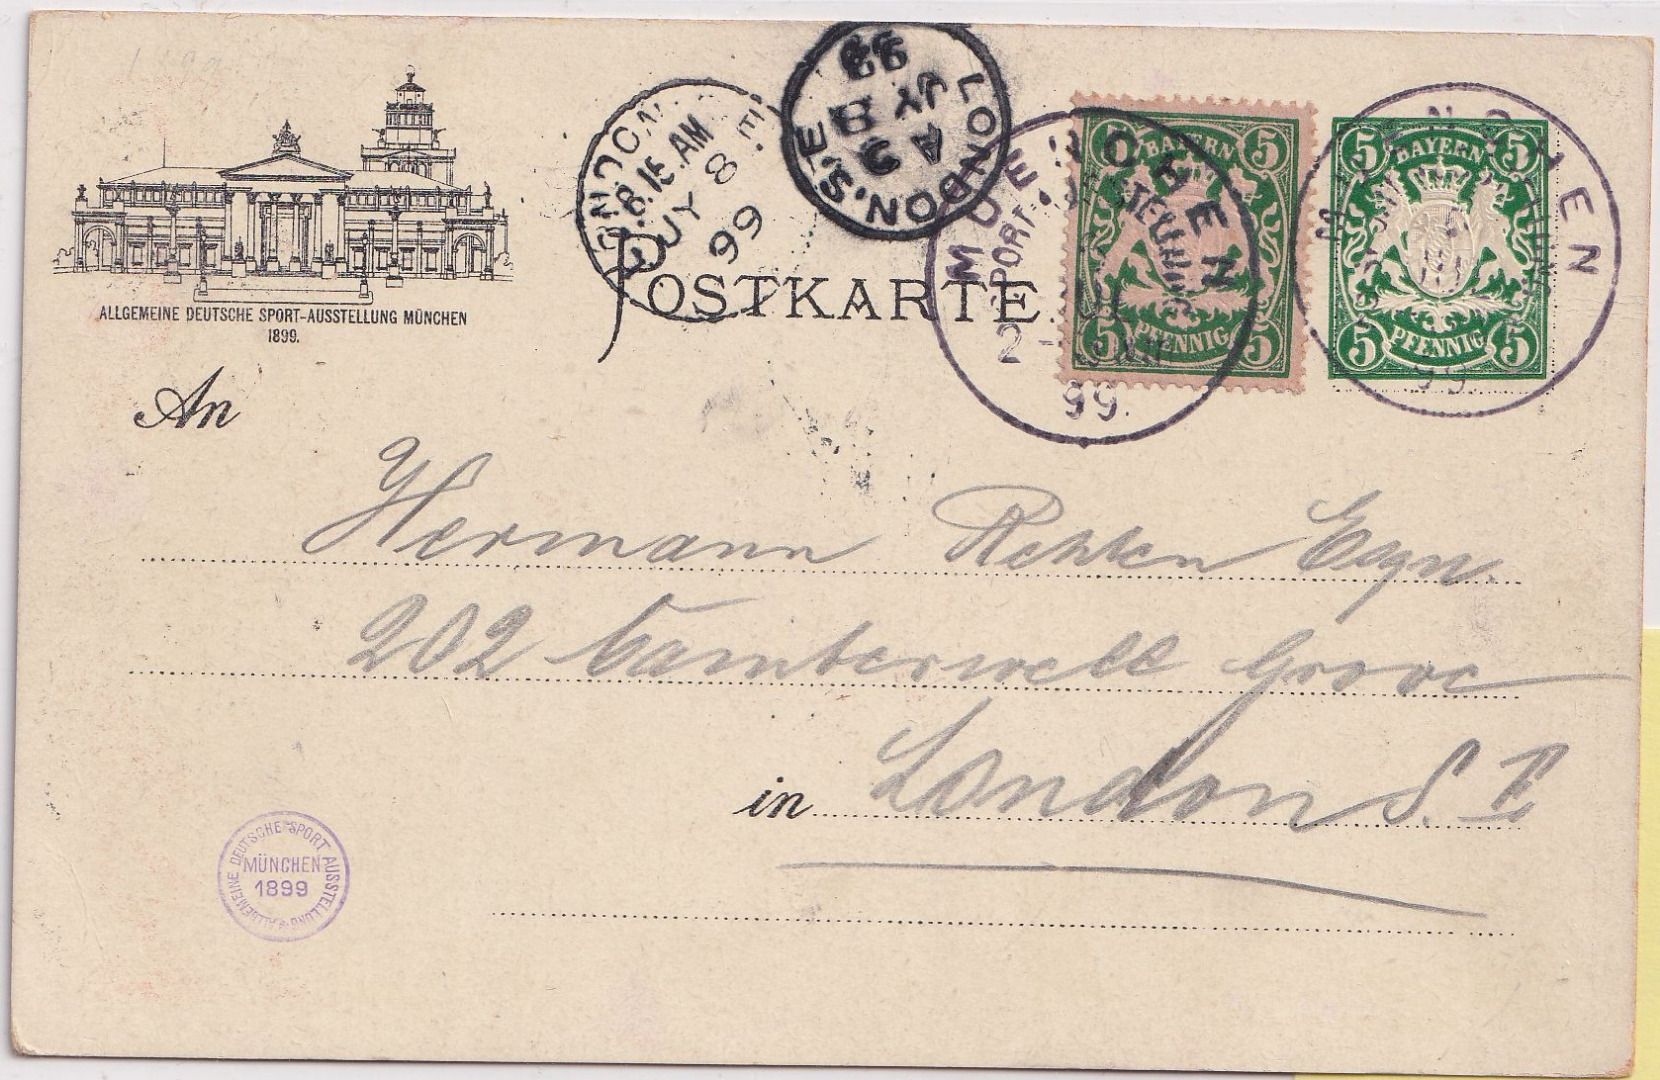 1899
ALLGEMEINE DEUTSCHE SPORT-AUSSTELLUNG MÜNCHEN
1899.
LONDON
8.15.AM
JY 8
99
LONDON.S.E
A
JY 8
99
POSTKARTE
MUENCHEN
SPORT-AUSSTELLUNG
99.
BAYERN
5 5
5 5
PFENNIG
MUENCHEN
99.
BAYERN
5 5
5 5
PFENNIG
An
Hermann Rehten Esqn.
202 Camberwell Grove
in London S. E
ALLGEMEINE DEUTSCHE SPORT AUSSTELLUNG
MÜNCHEN
1899